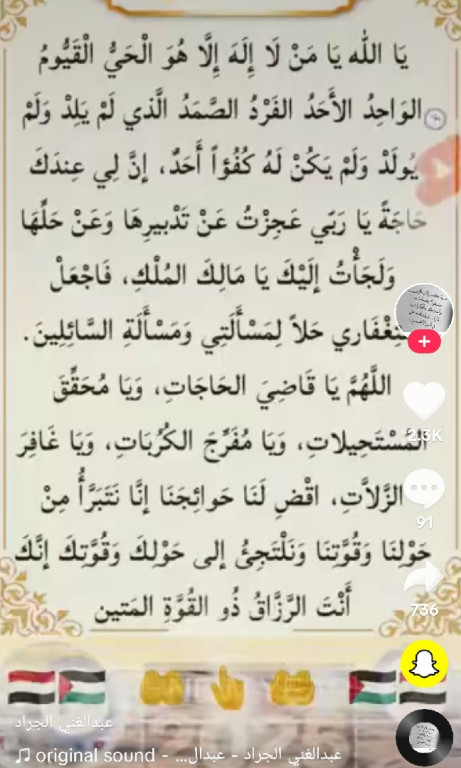 يَا اللّٰه يَا مَنْ لَا إِلَهَ إِلَّا هُوَ الْحَيُّ الْقَيُّومُ
الوَاحِدُ الأَحَدُ الفَرْدُ الصَّمَدُ الَّذي لَمْ يَلِدْ وَلَمْ
يُولَدْ وَلَمْ يَكُنْ لَهُ كُفُؤاً أَحَدٌ، إنَّ لِي عِندَكَ
حَاجَةً يَا رَبّي عَجِزْتُ عَنْ تَدْبِيرِهَا وَعَنْ حَلِّهَا
وَلَجَأْتُ إِلَيْكَ يَا مَالِكَ المُلْكِ، فَاجْعَلْ
حَلاً لِمَسْأَلَتِي وَمَسْأَلَةِ السَّائِلِينَ.
اللَّهُمَّ يَا قَاضِيَ الحَاجَاتِ، وَيَا مُحَقِّقَ
المُسْتَحِيلاتِ، وَيَا مُفَرِّجَ الكُرُبَاتِ، وَيَا غَافِرَ
الزَّلاَّتِ، اقْضِ لَنَا حَوائِجَنَا إنَّا نَتَبَرَّأُ مِنْ
حَوْلِنَا وَقُوَّتِنَا وَنَلْتَجِئُ إلى حَوْلِكَ وَقُوَّتِكَ إنَّكَ
أَنْتَ الرَّزَّاقُ ذُو القُوَّةِ المَتين
2.3K
91
736
عبدالغني الجراد
original sound - عبدالغني الجراد - عبدال...